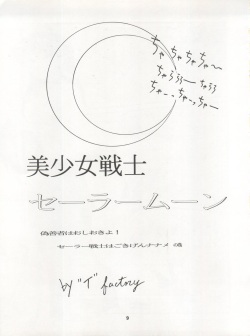 ちゃ ちゃちゃちゃ〜
ちゃららー ちゃらら
ちゃーっちゃーっちゃー
美少女戦士
セーラームーン
偽善者はおしおきよ！
セーラー戦士はごきげんナナメ の巻
by "T" factory
9